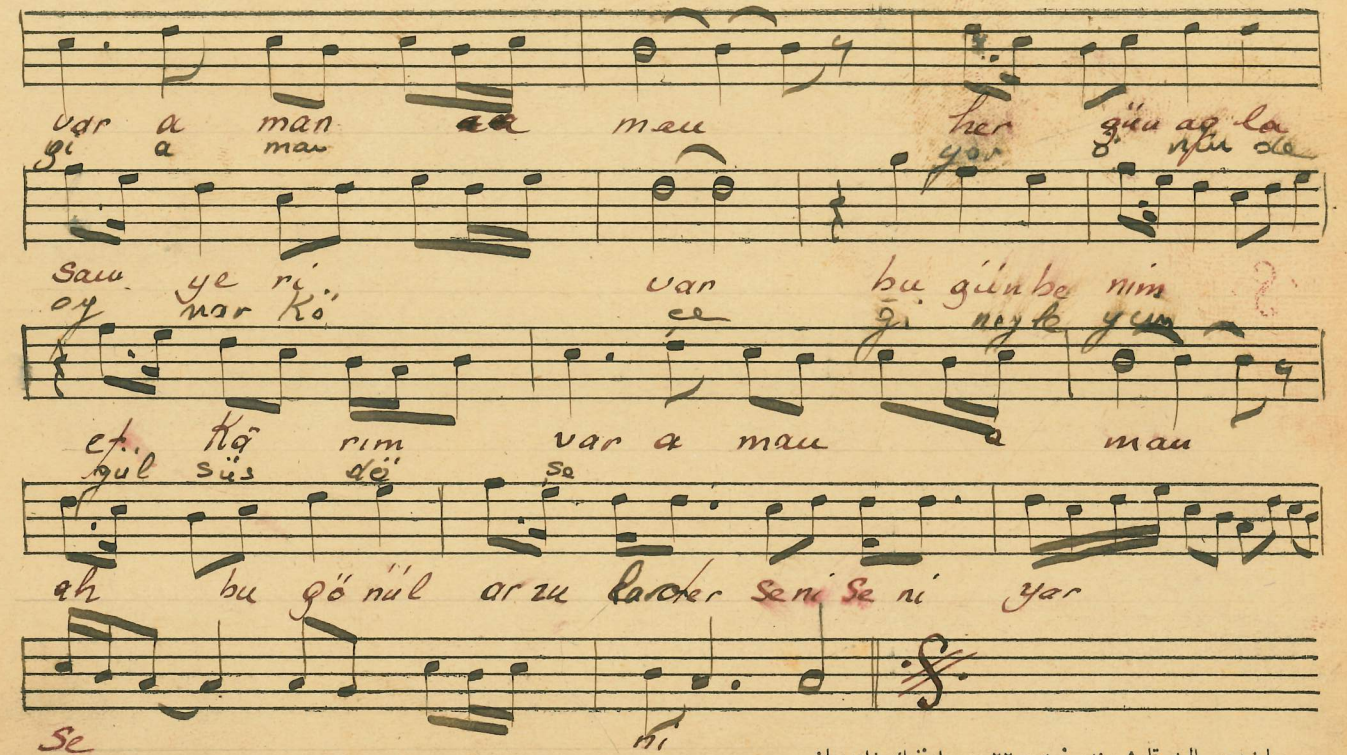 var a man a man her gün ag la
gi a man yor ö nün de
sam ye ri var bu gün be nim
oy nar Kö çe gi neyle yim
ef. Kâ rım var a man a man
gül süs dö se
ah bu gö nül arzu lar der se ni se ni yar
se ni